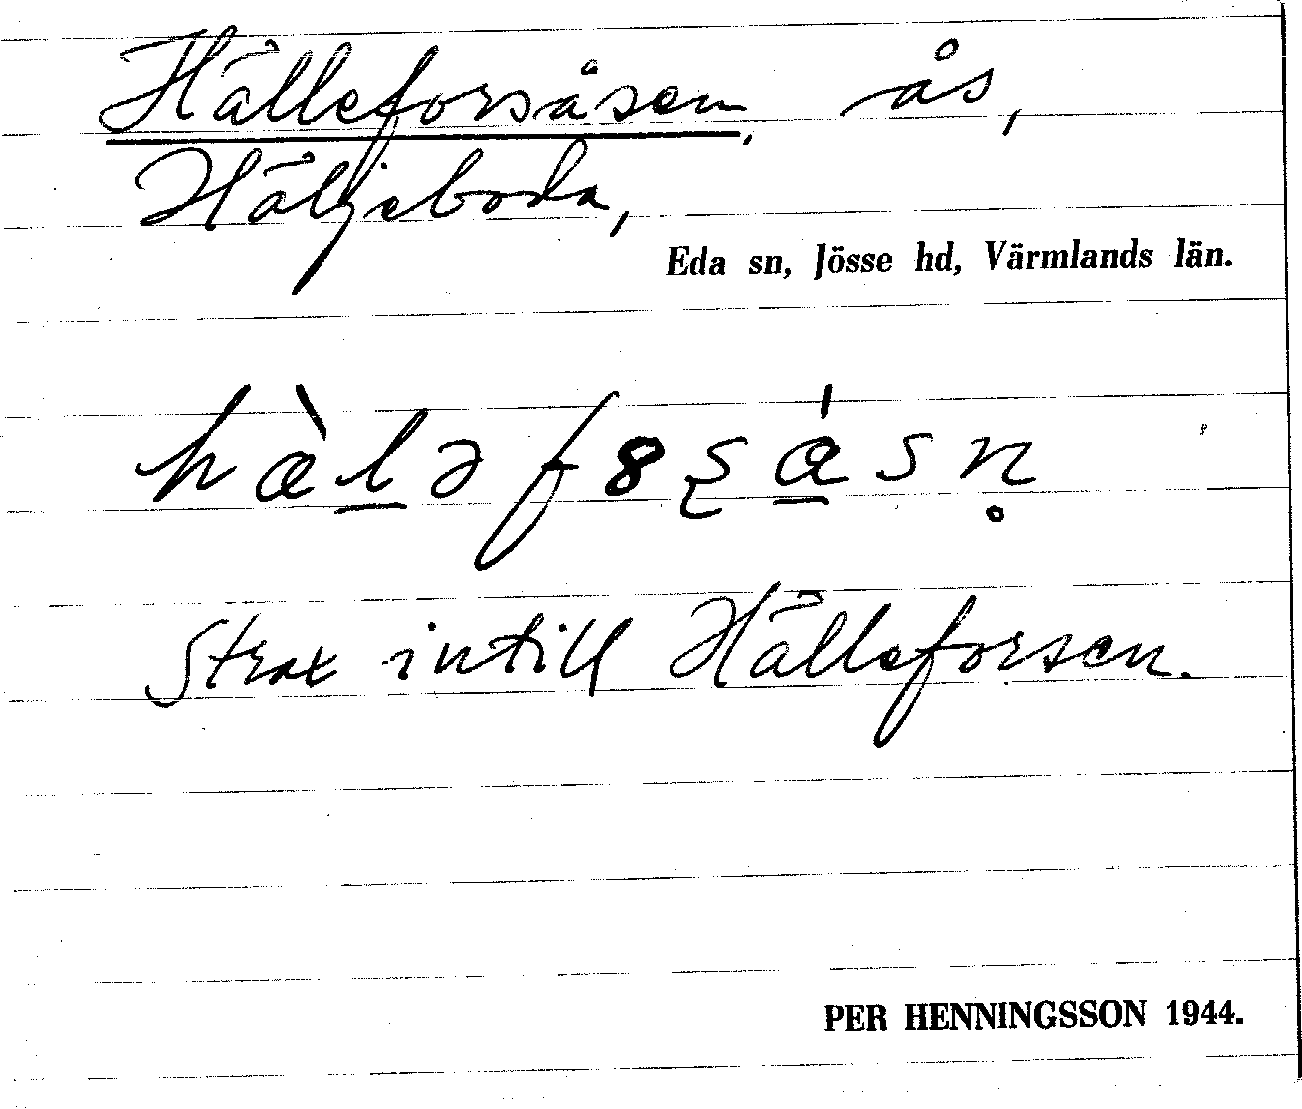 Hälleforsåsen, ås,
Häljeboda,
Eda sn, Jösse hd, Värmlands län.
hæ̀l̲əf8ʂá̲sn̥
Strax intill Hälleforsen.
PER HENNINGSSON 1944.